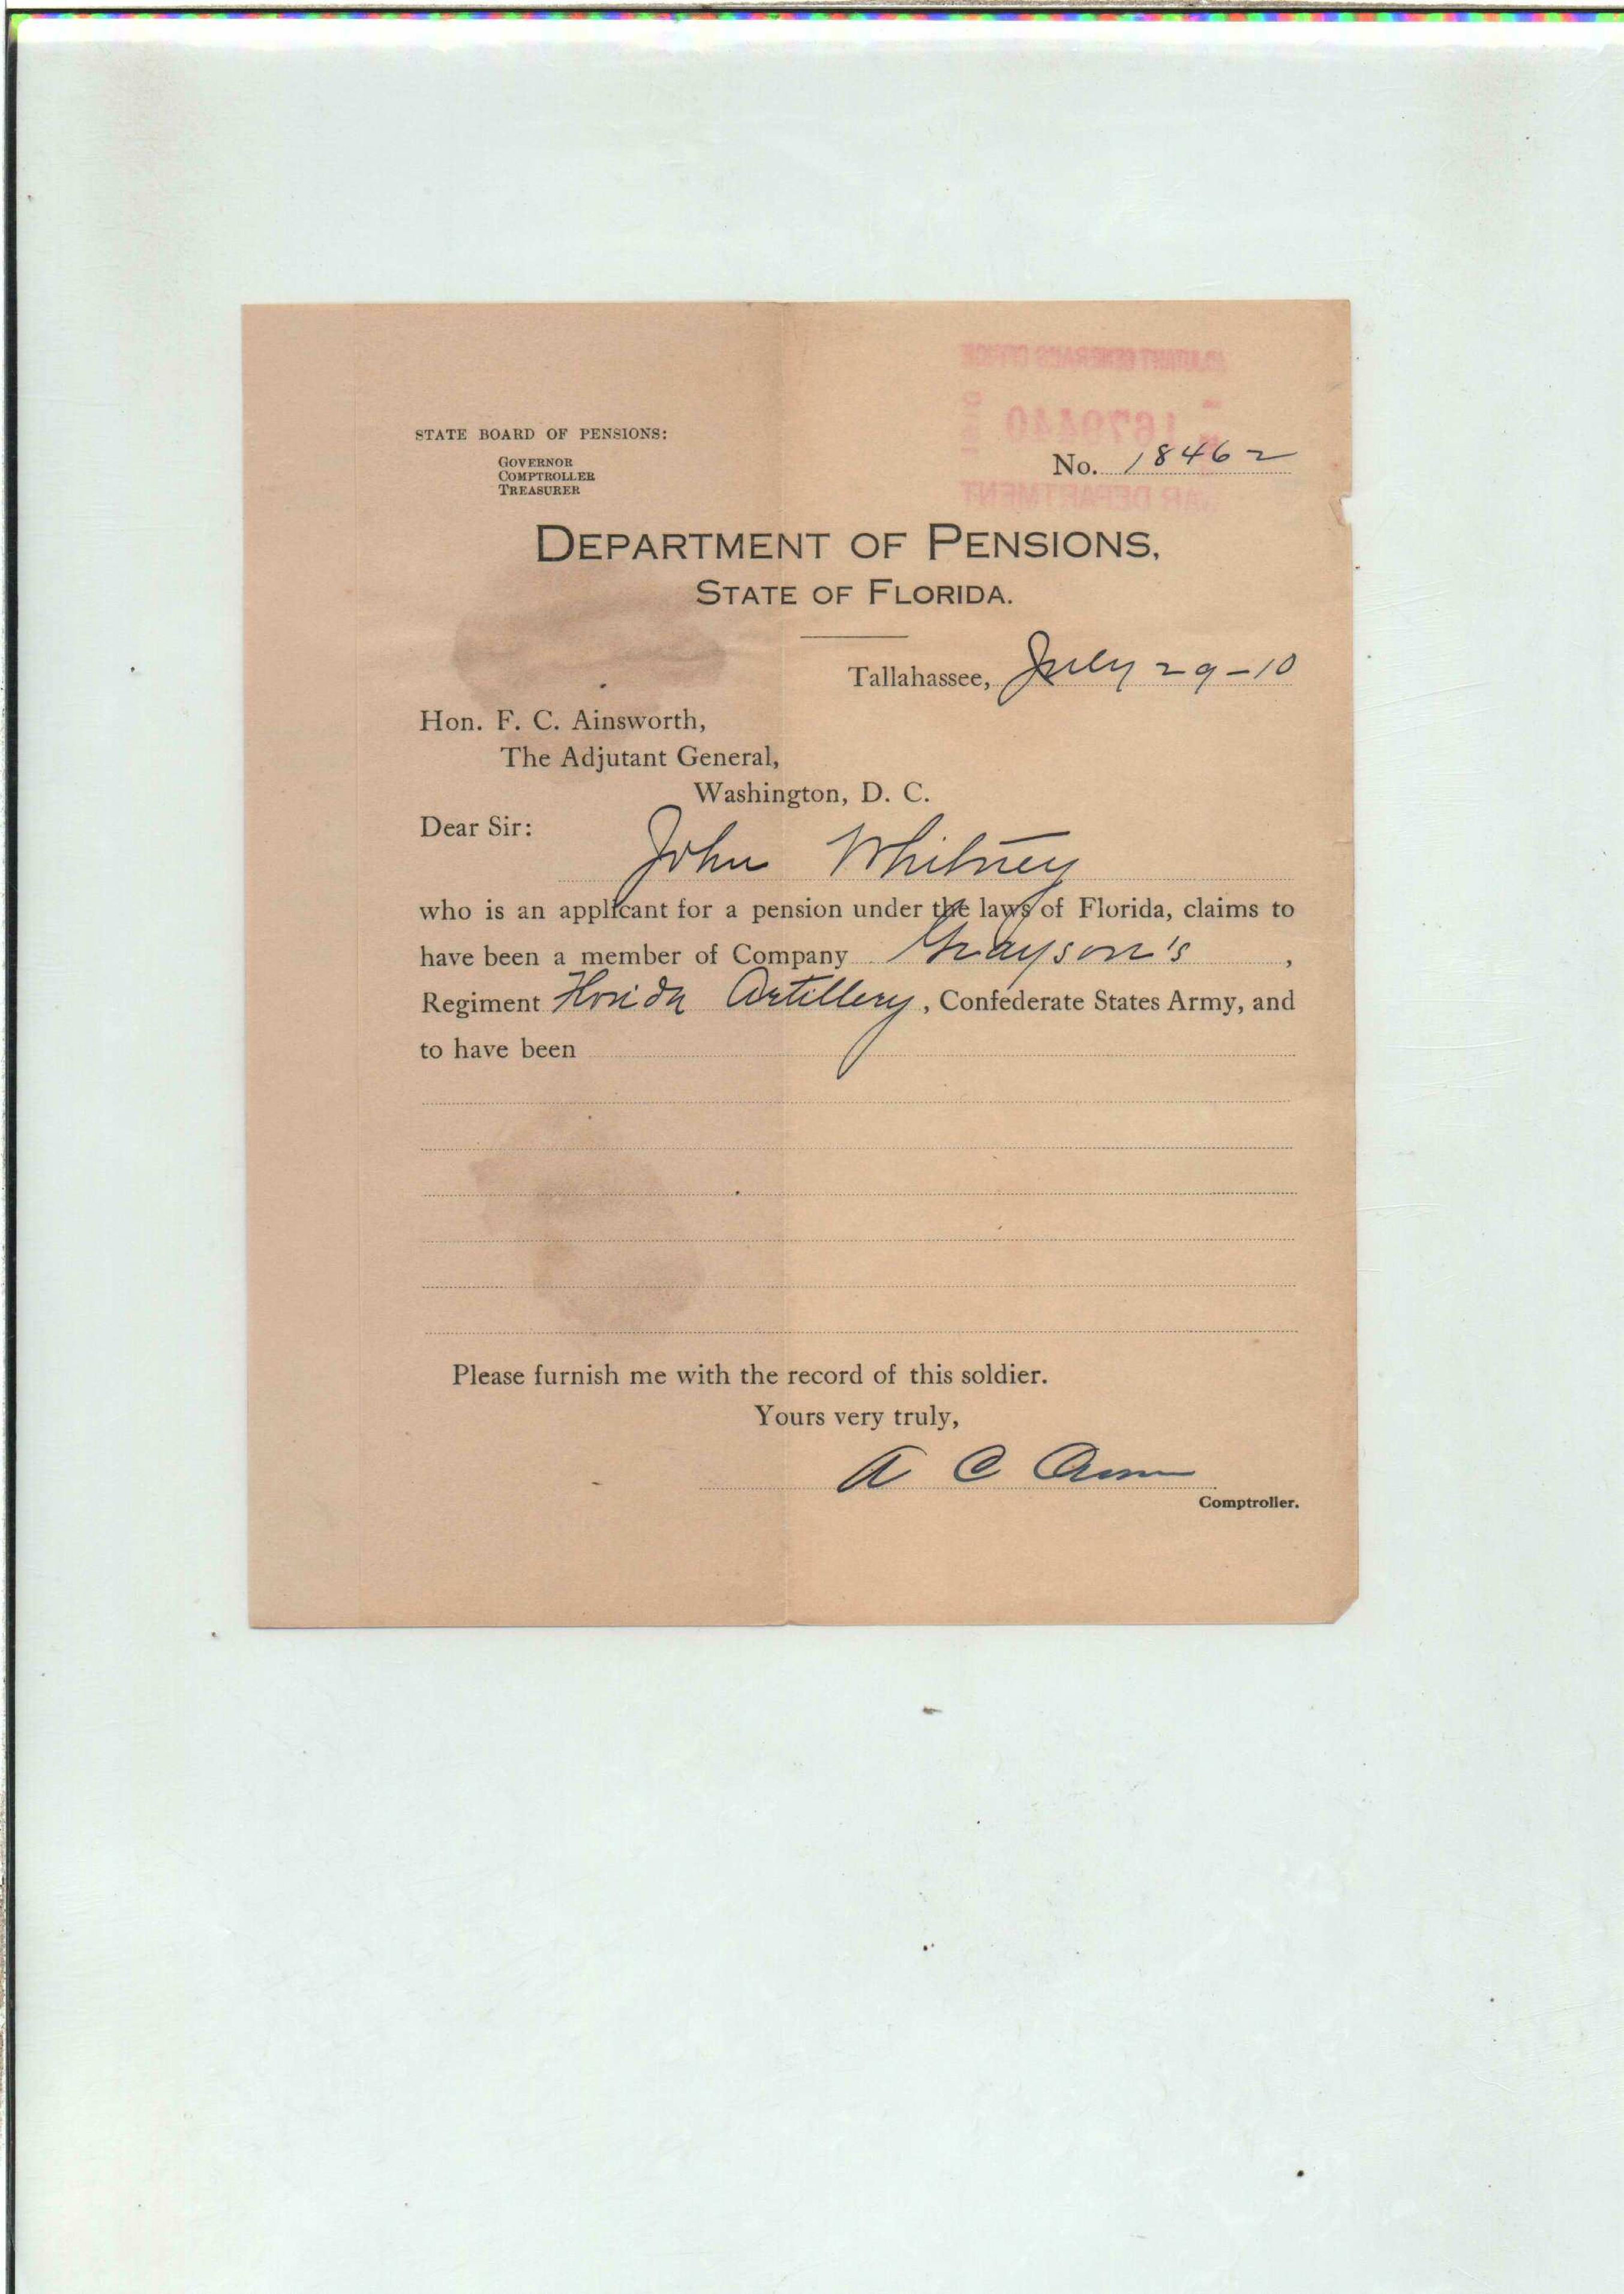 STATE BOARD OF PENSIONS:
GOVERNOR
COMPTROLLER
TREASURER
ADJUTANT GENERAL'S OFFICE
1679440
No. 18462
WAR DEPARTMENT
DEPARTMENT OF PENSIONS,
STATE OF FLORIDA.
Tallahassee, July 29-10
Hon. F. C. Ainsworth,
The Adjutant General,
Washington, D. C.
Dear Sir:
John Whitney
who is an applicant for a pension under the laws of Florida, claims to
have been a member of Company Grayson's,
Regiment Florida Artillery, Confederate States Army, and
to have been
Please furnish me with the record of this soldier.
Yours very truly,
A C
Comptroller.